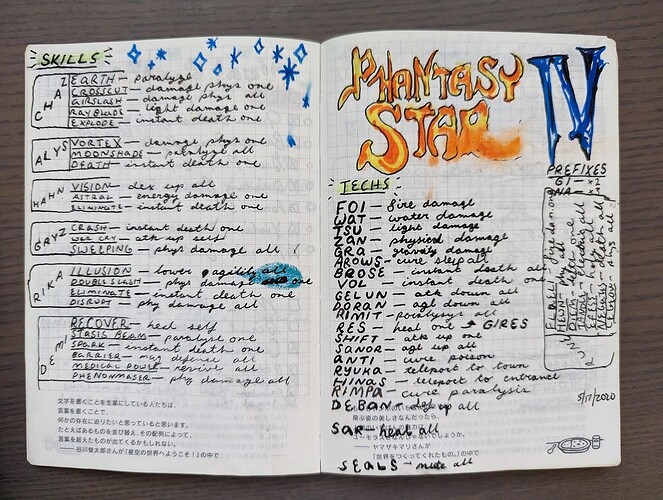 SKILLS
CHAZ
EARTH — paralyze
CROSSCUT — damage phys one
AIRSLASH — damage phys all
RAYBLADE — light damage one
EXPLODE — instant death one
ALYS
VORTEX — damage phys one
MOONSHADE — paralyze all
DEATH — instant death one
HAHN
VISION — dex up all
ASTRAL — energy damage one
ELIMINATE — instant death one
GRYZ
CRASH — instant death one
WAR CRY — atk up self
SWEEPING — phys damage all
RIKA
ILLUSION — lower agility all
DOUBLE SLASH — phys damage one
ELIMINATE — instant death one
DISRUPT — phy damage all
DEMI
RECOVER — heal self
STASIS BEAM — paralyze one
SPARK — instant death one
BARRIER — mag defense all
MEDICAL POWER — revive all
PHENOMASER — phy damage all
文字を書くことを生業にしている人たちは、
言葉を書くことで、
何かの存在に迫りたいと思っていると思います。
たとえばあるものを並び替え、その配列によって、
言葉を超えたものが出てくるかもしれない。
——谷川俊太郎さんが「星空の世界へようこそ!」の中で
PHANTASY
STAR
IV
TECHS
FOI — fire damage
WAT — water damage
TSU — light damage
ZAN — physical damage
GRA — gravity damage
AROWS — cure sleep all
BROSE — instant death all
VOL — instant death one
GELUN — atk down all
DORAN — agl down all
RIMIT — paralysys all
RES — heal one → GIRES
SHIFT — atk up one
SANOR — agl up all
ANTI — cure poison
RYUKA — teleport to town
HINAS — teleport to entrance
RIMPA — cure paralysis
DEBAN — def up all
SAR — heal all
SEALS — mute all
PREFIXES
GI —
NA —
5/17/2020
——ヤマザキマリさんが
「世界をつくってくれたもの。」の中で